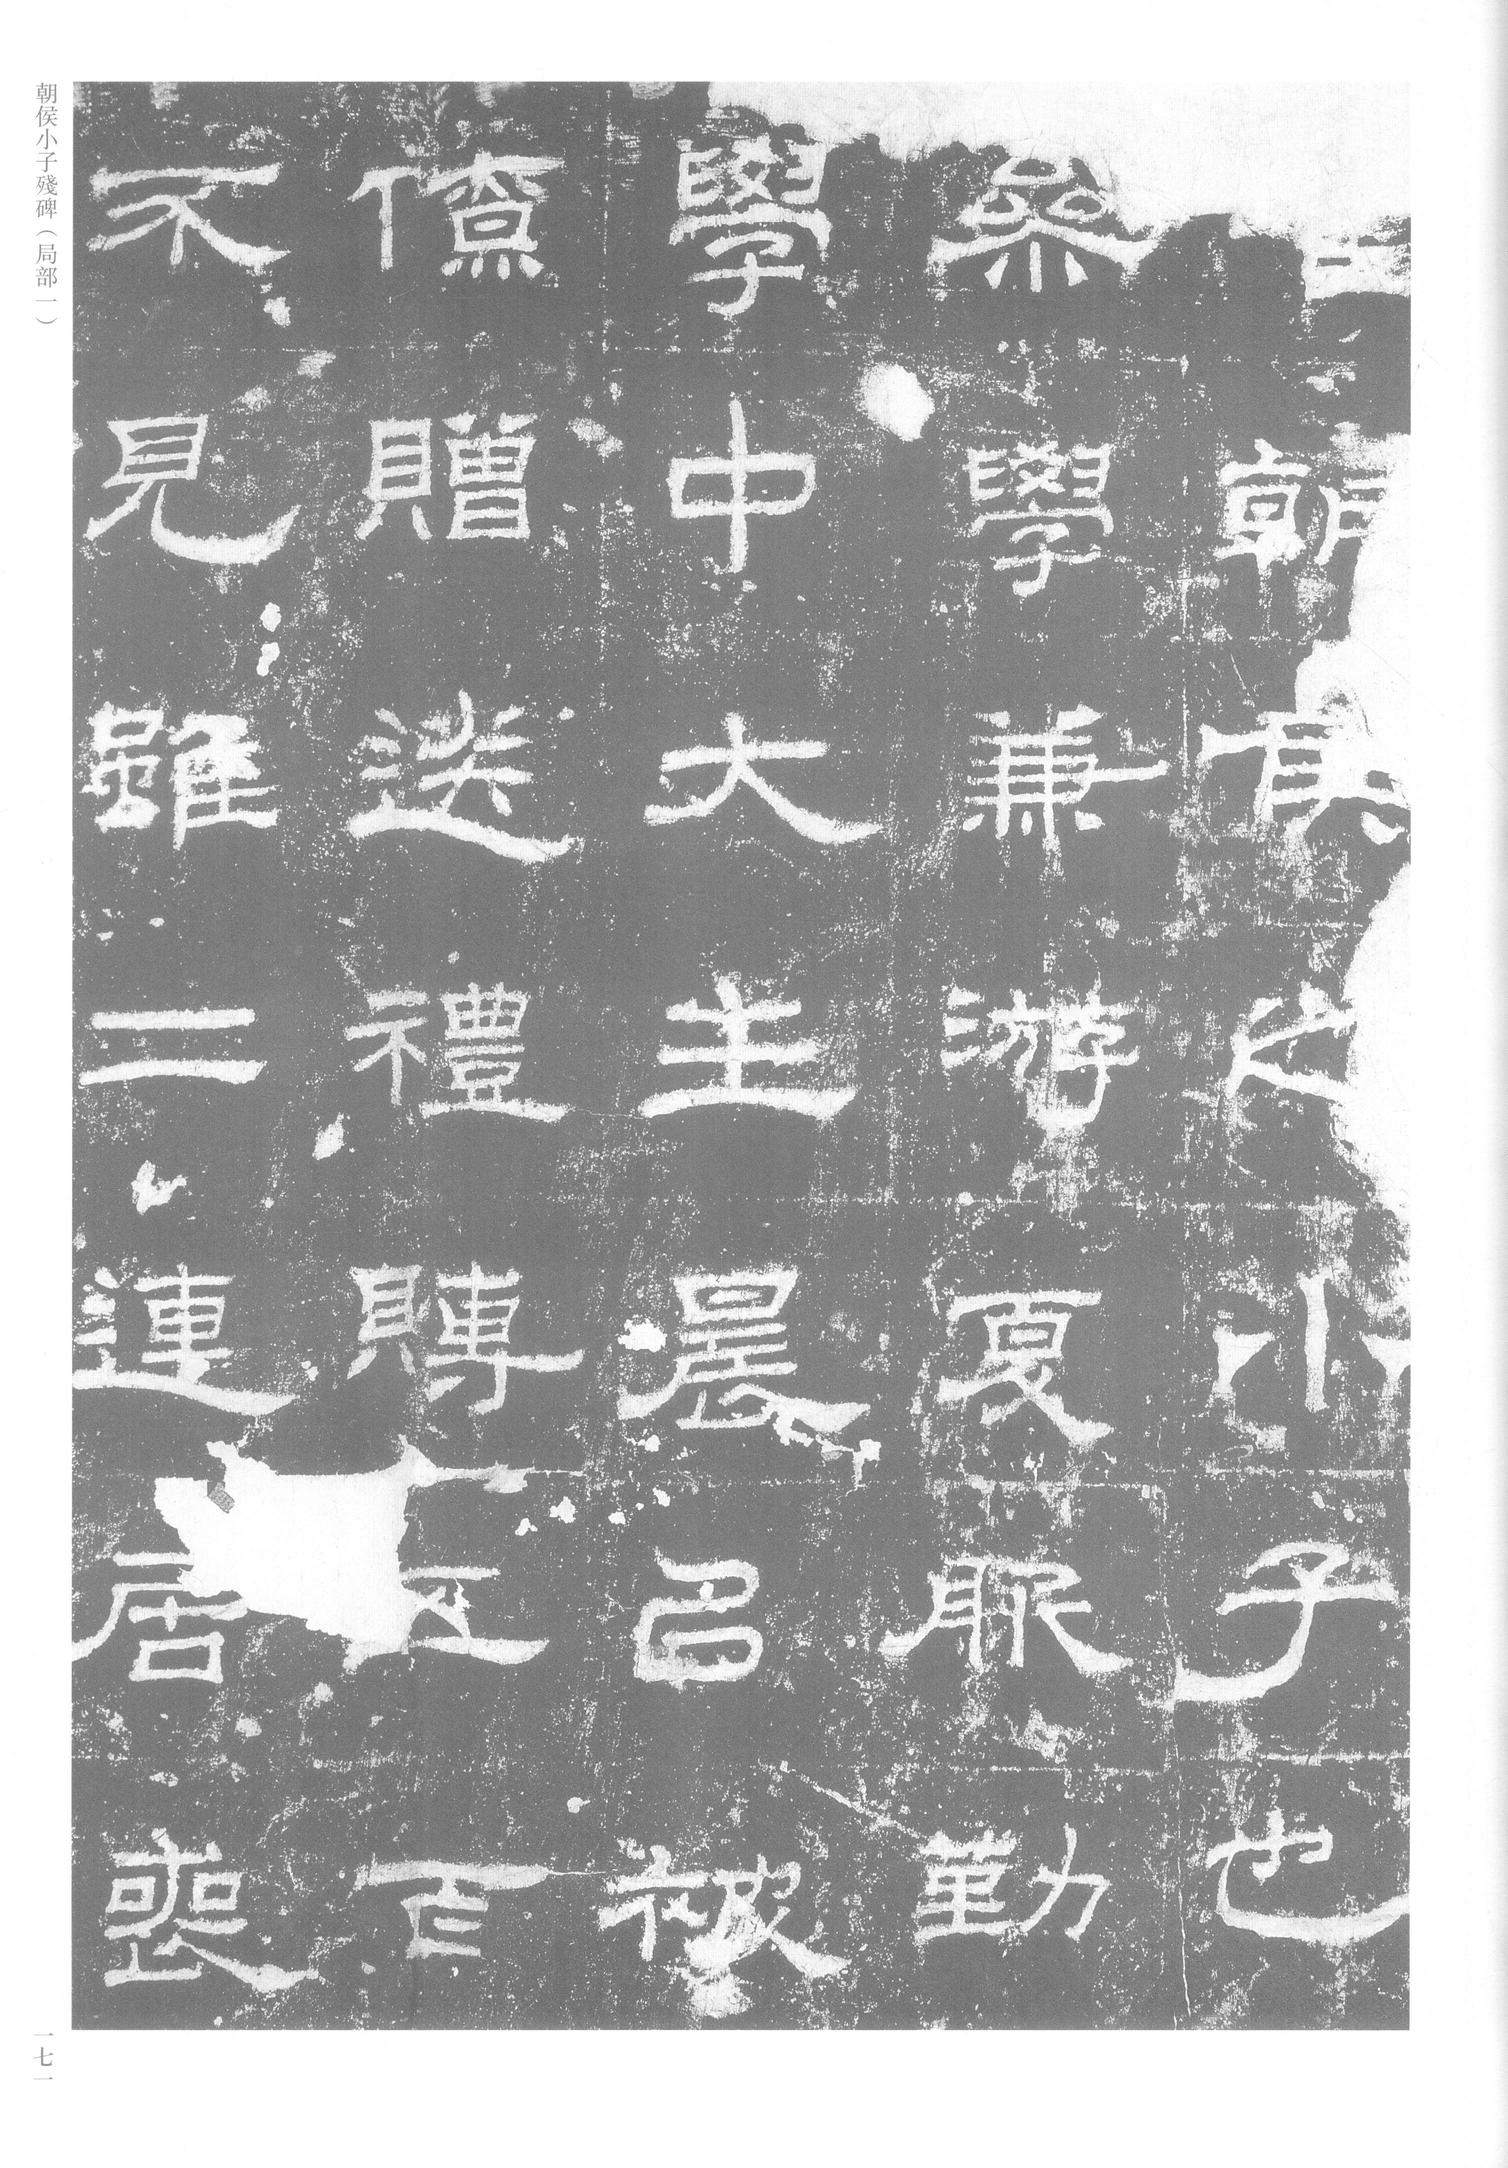 朝侯之小子也
叅學兼游夏服勤
學中大主晨㠯被
僚贈送禮賻五百
不見雖二連居喪
朝侯小子殘碑（局部一）
一七一